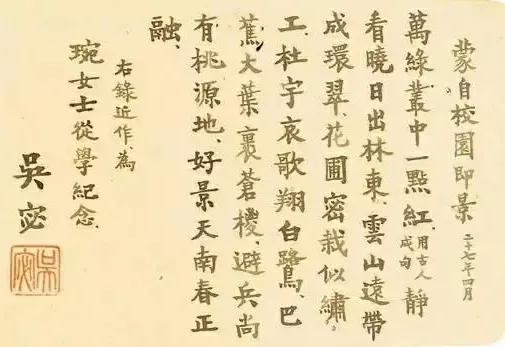 蒙自校園即景 二十七年四月
萬綠叢中一點紅 用古人成句 靜
看曉日出林東、雲山遠帶
成環翠、花圃密栽似繡
工、杜宇哀歌翔白鷺、巴
蕉大葉裹蒼椶、避兵尚
有桃源地、好景天南春正
融、
右錄近作、為
琬女士從學紀念、
吳宓
吳宓